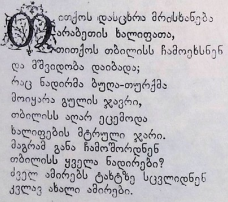 თითქოს დასცხრა მრისხანება
არაბეთის ხალიფათა,
თითქოს თბილისს ჩამოეხსნენ
და მშვიდობა დაიბადა;
რაც ნადირმა ბუღა-თურქმა
მოიყარა გულის ჯავრი,
თბილისს აღარ ეცემოდა
ხალიფების მტრული ჯარი.
მაგრამ განა ჩამოშორდნენ
თბილისს ყველა ნადირები?
ძველ ამირებს ტახტზე სცვლიდნენ
კვლავ ახალი ამირები.